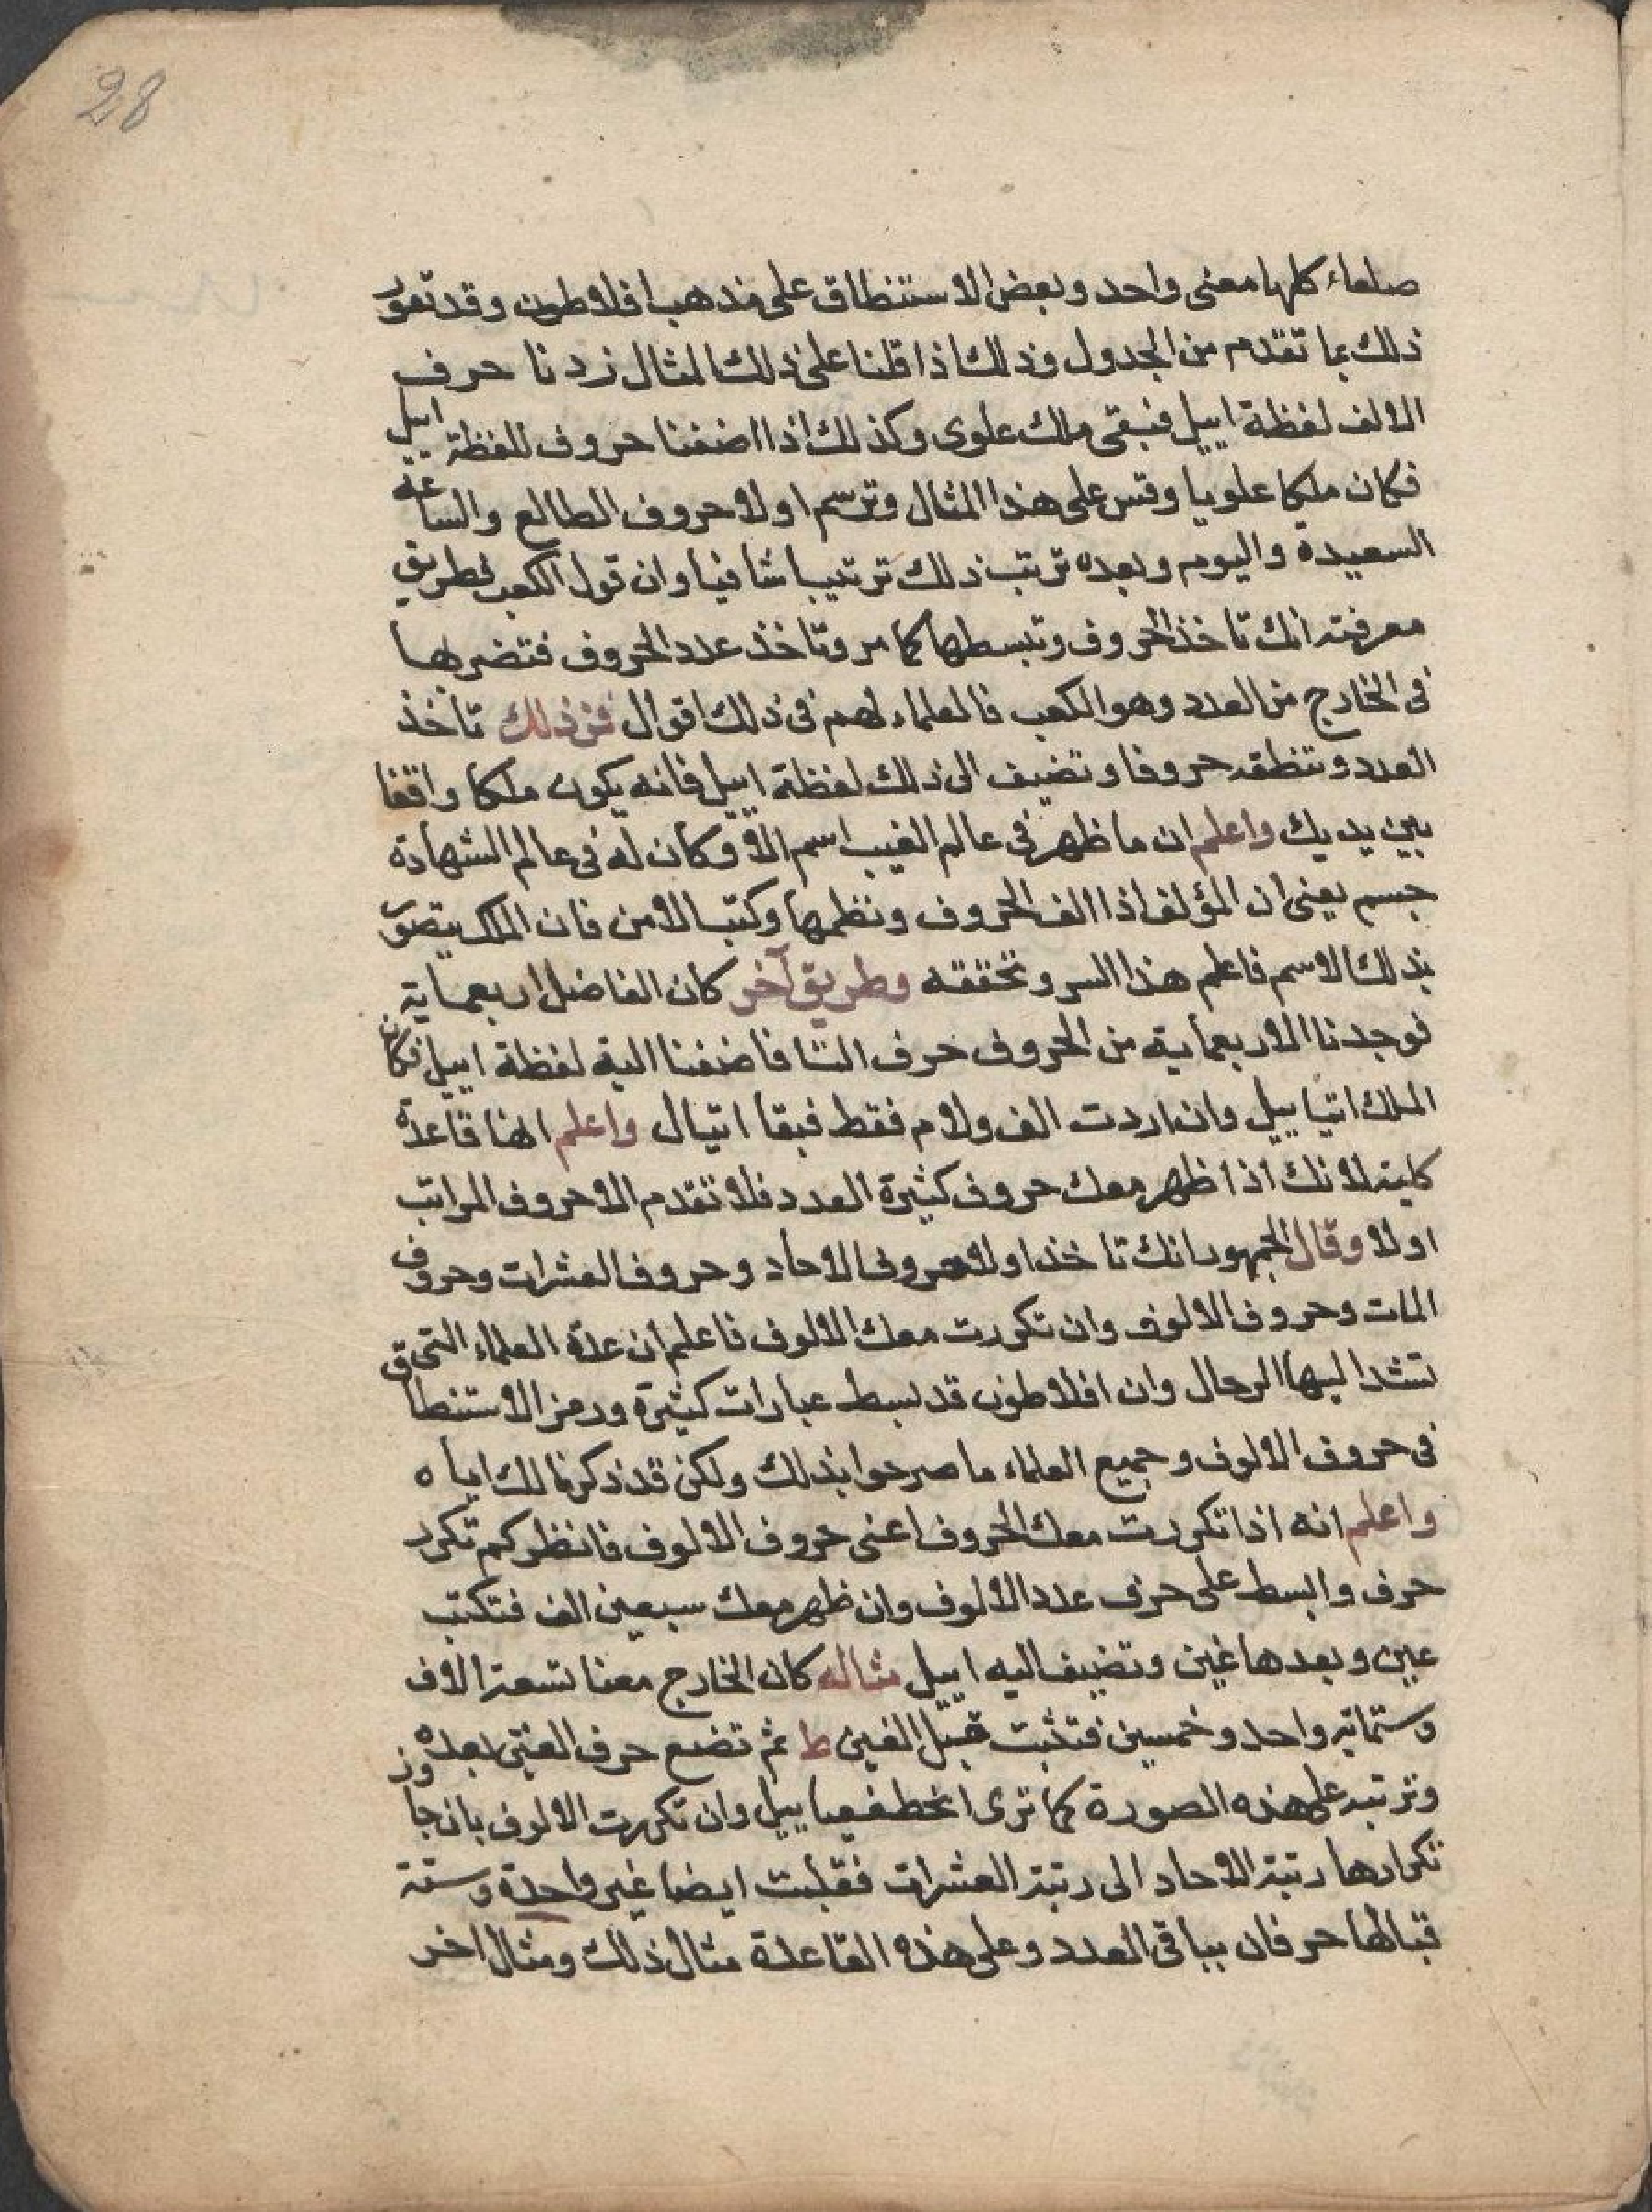 28
صلعاء كلها معنى واحد وبعض الاستنطاق على مذهب افلاطون وقد تقرر
ذلك بما تقدم من الجدول وذلك اذا قلنا على ذلك المثال زدنا حرف
الالف لفظة اييل فنبقى ملك علوى وكذلك اذا اضفنا حروف للفظة اييل
فكان ملكا علويا وقس على هذا المثال وترسم اولا حروف الطالع والساعة
السعيدة واليوم وبعده ترتب ذلك ترتيبا شافيا وان قول الكعب لطريق
معرفته انك تاخذ الحروف وتبسطها كما مر وتاخذ عدد الحروف فتضربها
فى الخارج من العدد وهو الكعب فالعلماء لهم فى ذلك اقوال فمن ذلك تاخذ
العدد وتنطقه حروفا وتضيف الى ذلك لفظة اييل فانه يكون ملكا واقفا
بين يديك واعلم ان ما ظهر فى عالم الغيب اسم الا وكان له فى عالم الشهادة
جسم يعنى ان المؤلف اذا الف الحروف ونظمها وكتب الامن فان الملك يتصور
بذلك الاسم فاعلم هذا السر وتحققه وطريق آخر كان الفاضل اربعماية
فوجدنا الاربعماية من الحروف حرف التا فاضفنا الية لفظة اييل فكان
الملك اتياييل وان اردت الف ولام فقط فبقا اتيال واعلم الهنا قاعدة
كلية لانك اذا ظهر معك حروف كثيرة العدد فلا تقدم الا حروف المراتب
اولا وقال الجمهور انك تاخذ اولا حروف الاحاد وحروف العشرات وحروف
المات وحروف الالوف وان تكررت معك الالوف فاعلم ان عدة العلماء التى
تشد اليها الرحال وان افلاطون قد بسط عبارات كثيرة ورمز الاستنطاق
فى حروف الالوف وجميع العلماء ما صرحوا بذلك ولكن قد ذكرنا لك اياه
واعلم انه اذا تكررت معك الحروف اعنى حروف الالوف فانظر كم تكرر
حرف وابسط على حرف عدد الالوف وان ظهر معك سبعين الف فتكتب
عين وبعدها غين وتضيف اليه اييل مثاله كان الخارج معنا تسعة الاف
وستماية واحد وخمسين فتثبت قبيل الغين ط ثم تضع حرف الغين بعده
وترتبه على هذه الصورة كما ترى انخطغيياييل وان تكررت الالوف بان جاوز
تكرارها رتبة الاحاد الى رتبة العشرات فقلبت ايضا غين واحدة وستة
قبالها حرفان بباقى العدد وعلى هذه القاعدة مثال ذلك ومثال اخر